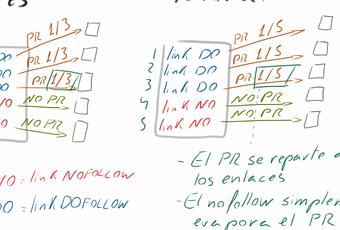 PR 1/3
PR 1/3
PR 1/3
NO PR
NO PR
NO = link NOFOLLOW
DO = link DOFOLLOW
PR 1/5
1 link DO PR 1/5
2 link DO
3 link DO PR 1/5
4 link NO NO PR
5 link NO NO PR
- El PR se reparte
los enlaces
- El nofollow simplem
evapora el PR